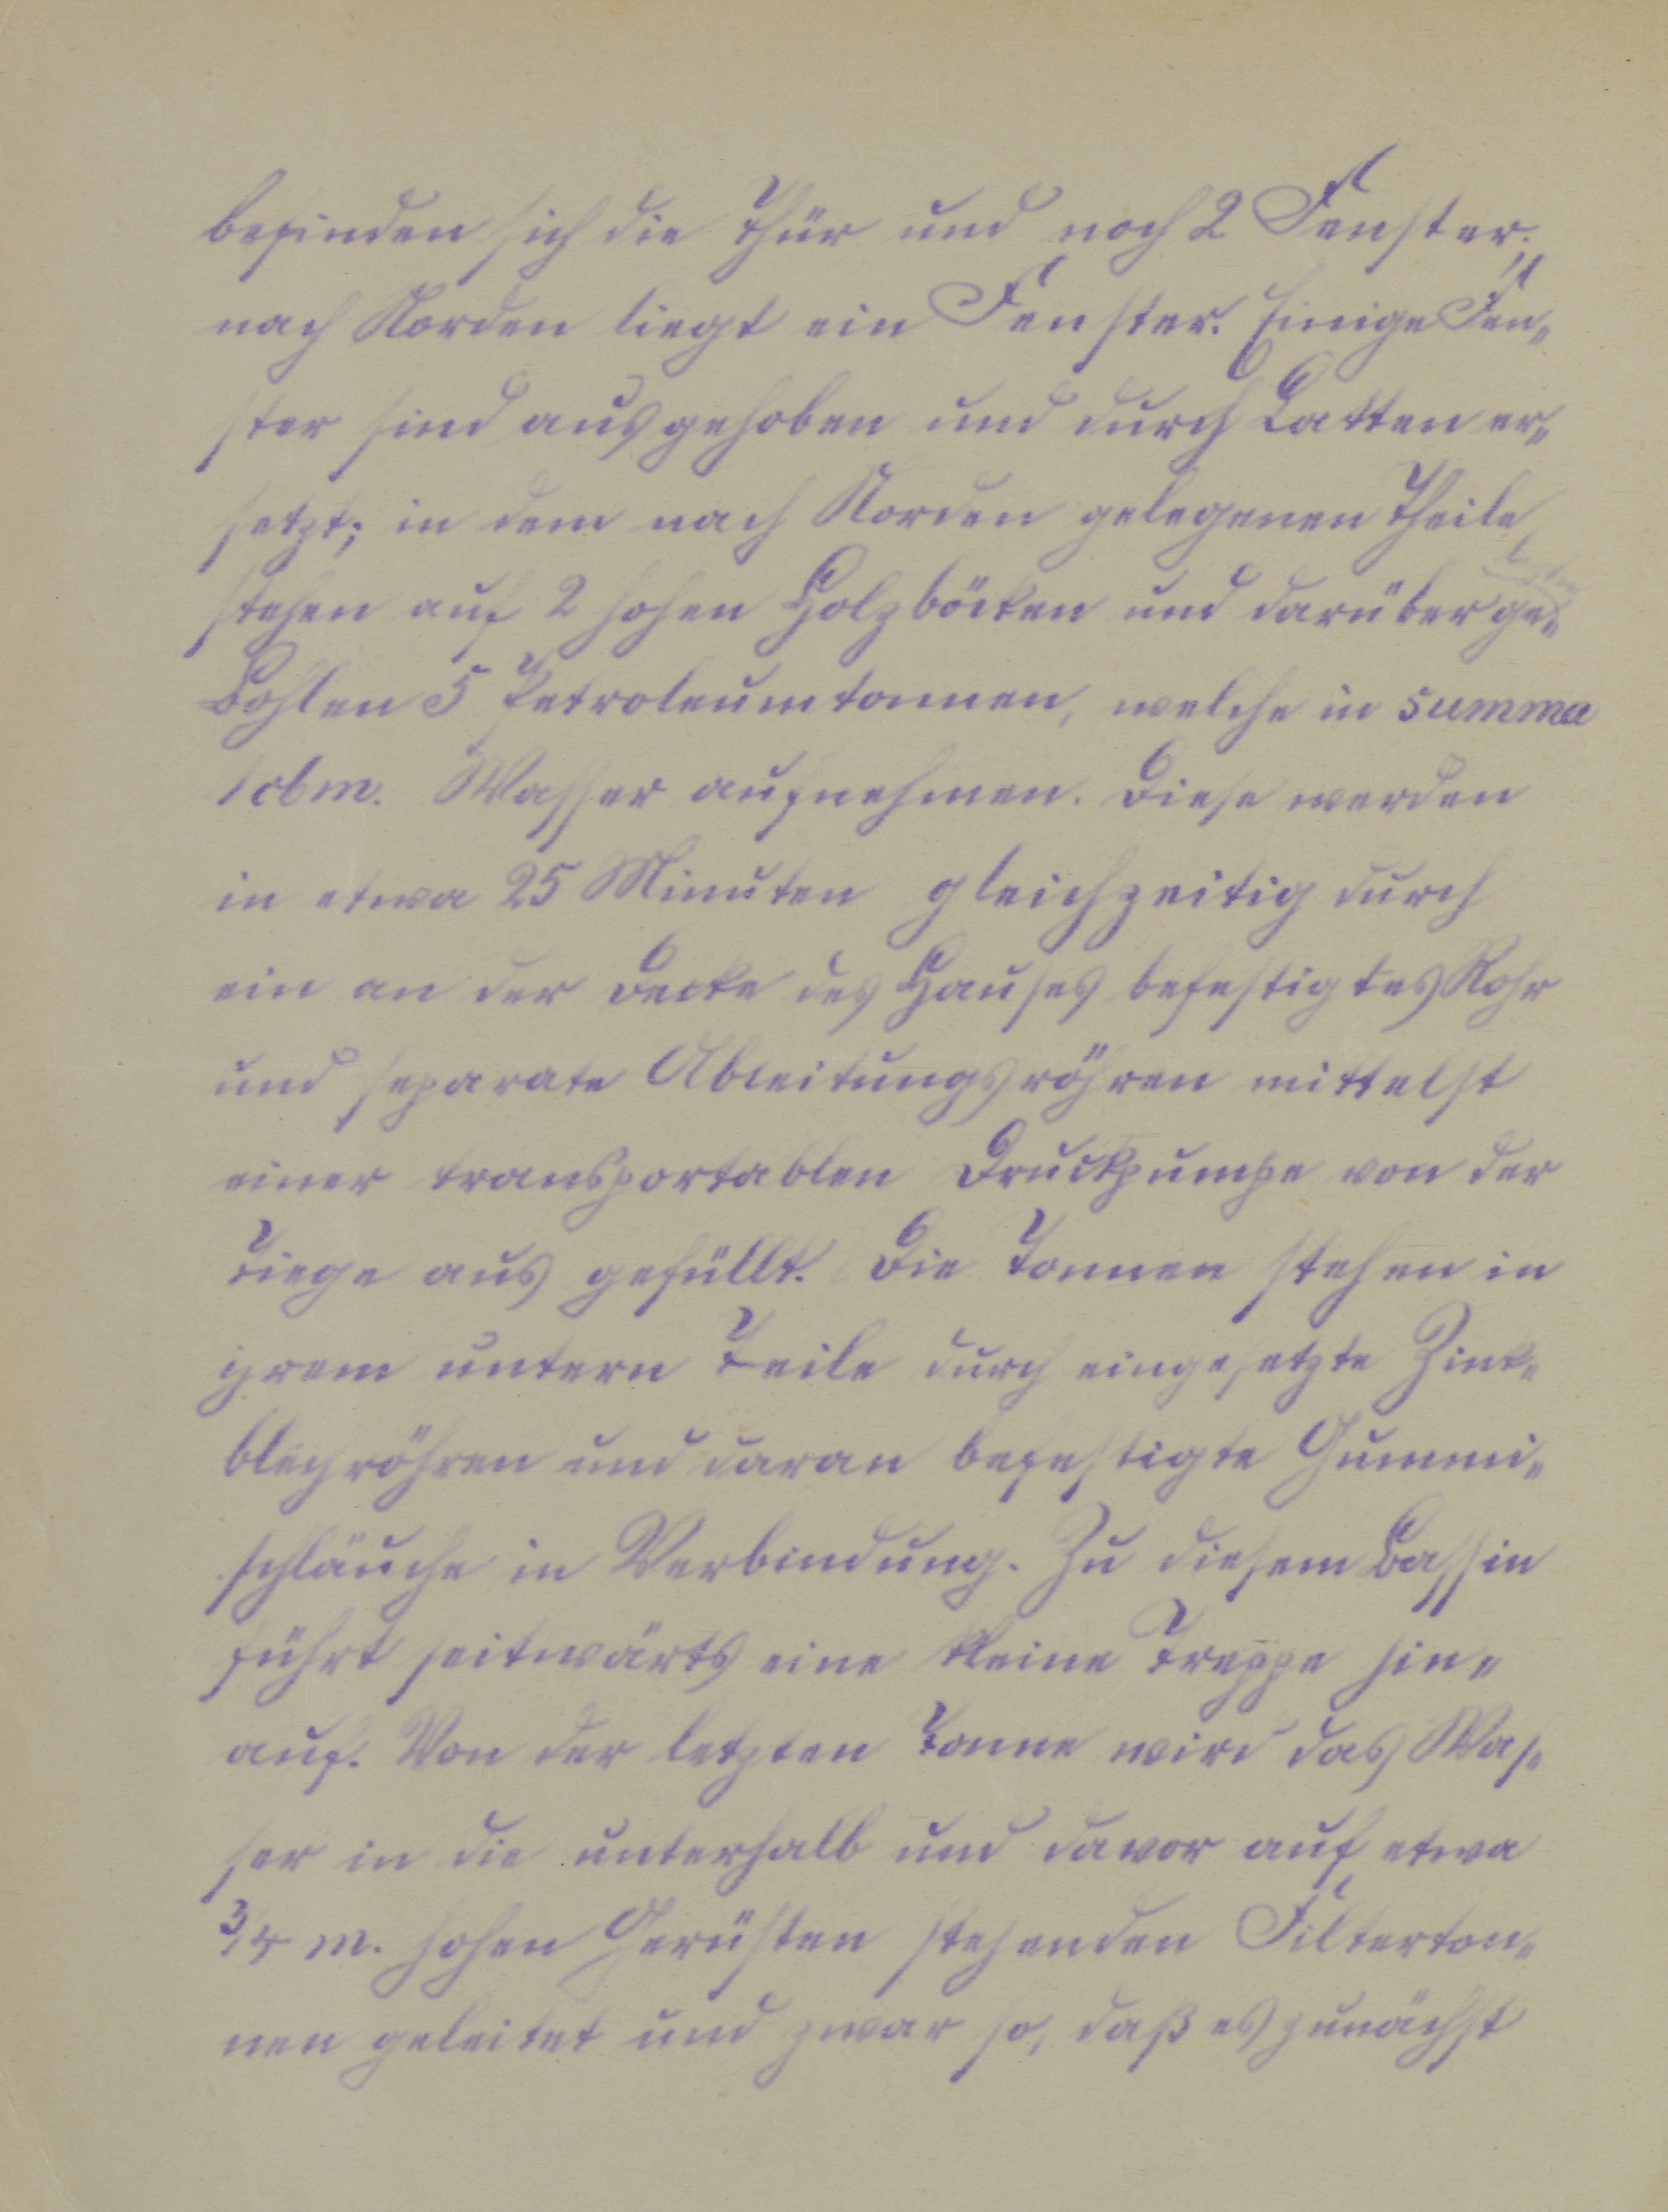 befinden sich die Thür und noch 2 Fenster;
nach Norden liegt ein Fenster. Einige Fen-
ster sind ausgehoben und durch Latten er-
setzt; in dem nach Norden gelegenen Theile
stehen auf 2 hohen Holzböcken und darüber ge-
Bohlen 5 Petroleumtonnen, welche in summa
1 cbm. Wasser aufnehmen. Diese werden
in etwa 25 Minuten gleichzeitig durch
ein an der Decke des Hauses befestigtes Rohr
und separate Ableitungsröhren mittelst
einer transportablen Druckpumpe von der
Tiege aus gefüllt. Die Tonnen stehen in
ihrem untern Teile durch eingesetzte Zink-
blechröhren und daran befestigte Gummi-
schläuche in Verbindung. Zu diesem Bassin
führt seitwärts eine kleine Treppe hin-
auf. Von der letzten Tonne wird das Was-
ser in die unterhalb und davor auf etwa
3/4 m. hohen Gerüsten stehenden Filterton-
nen geleitet und zwar so, daß es zunächst